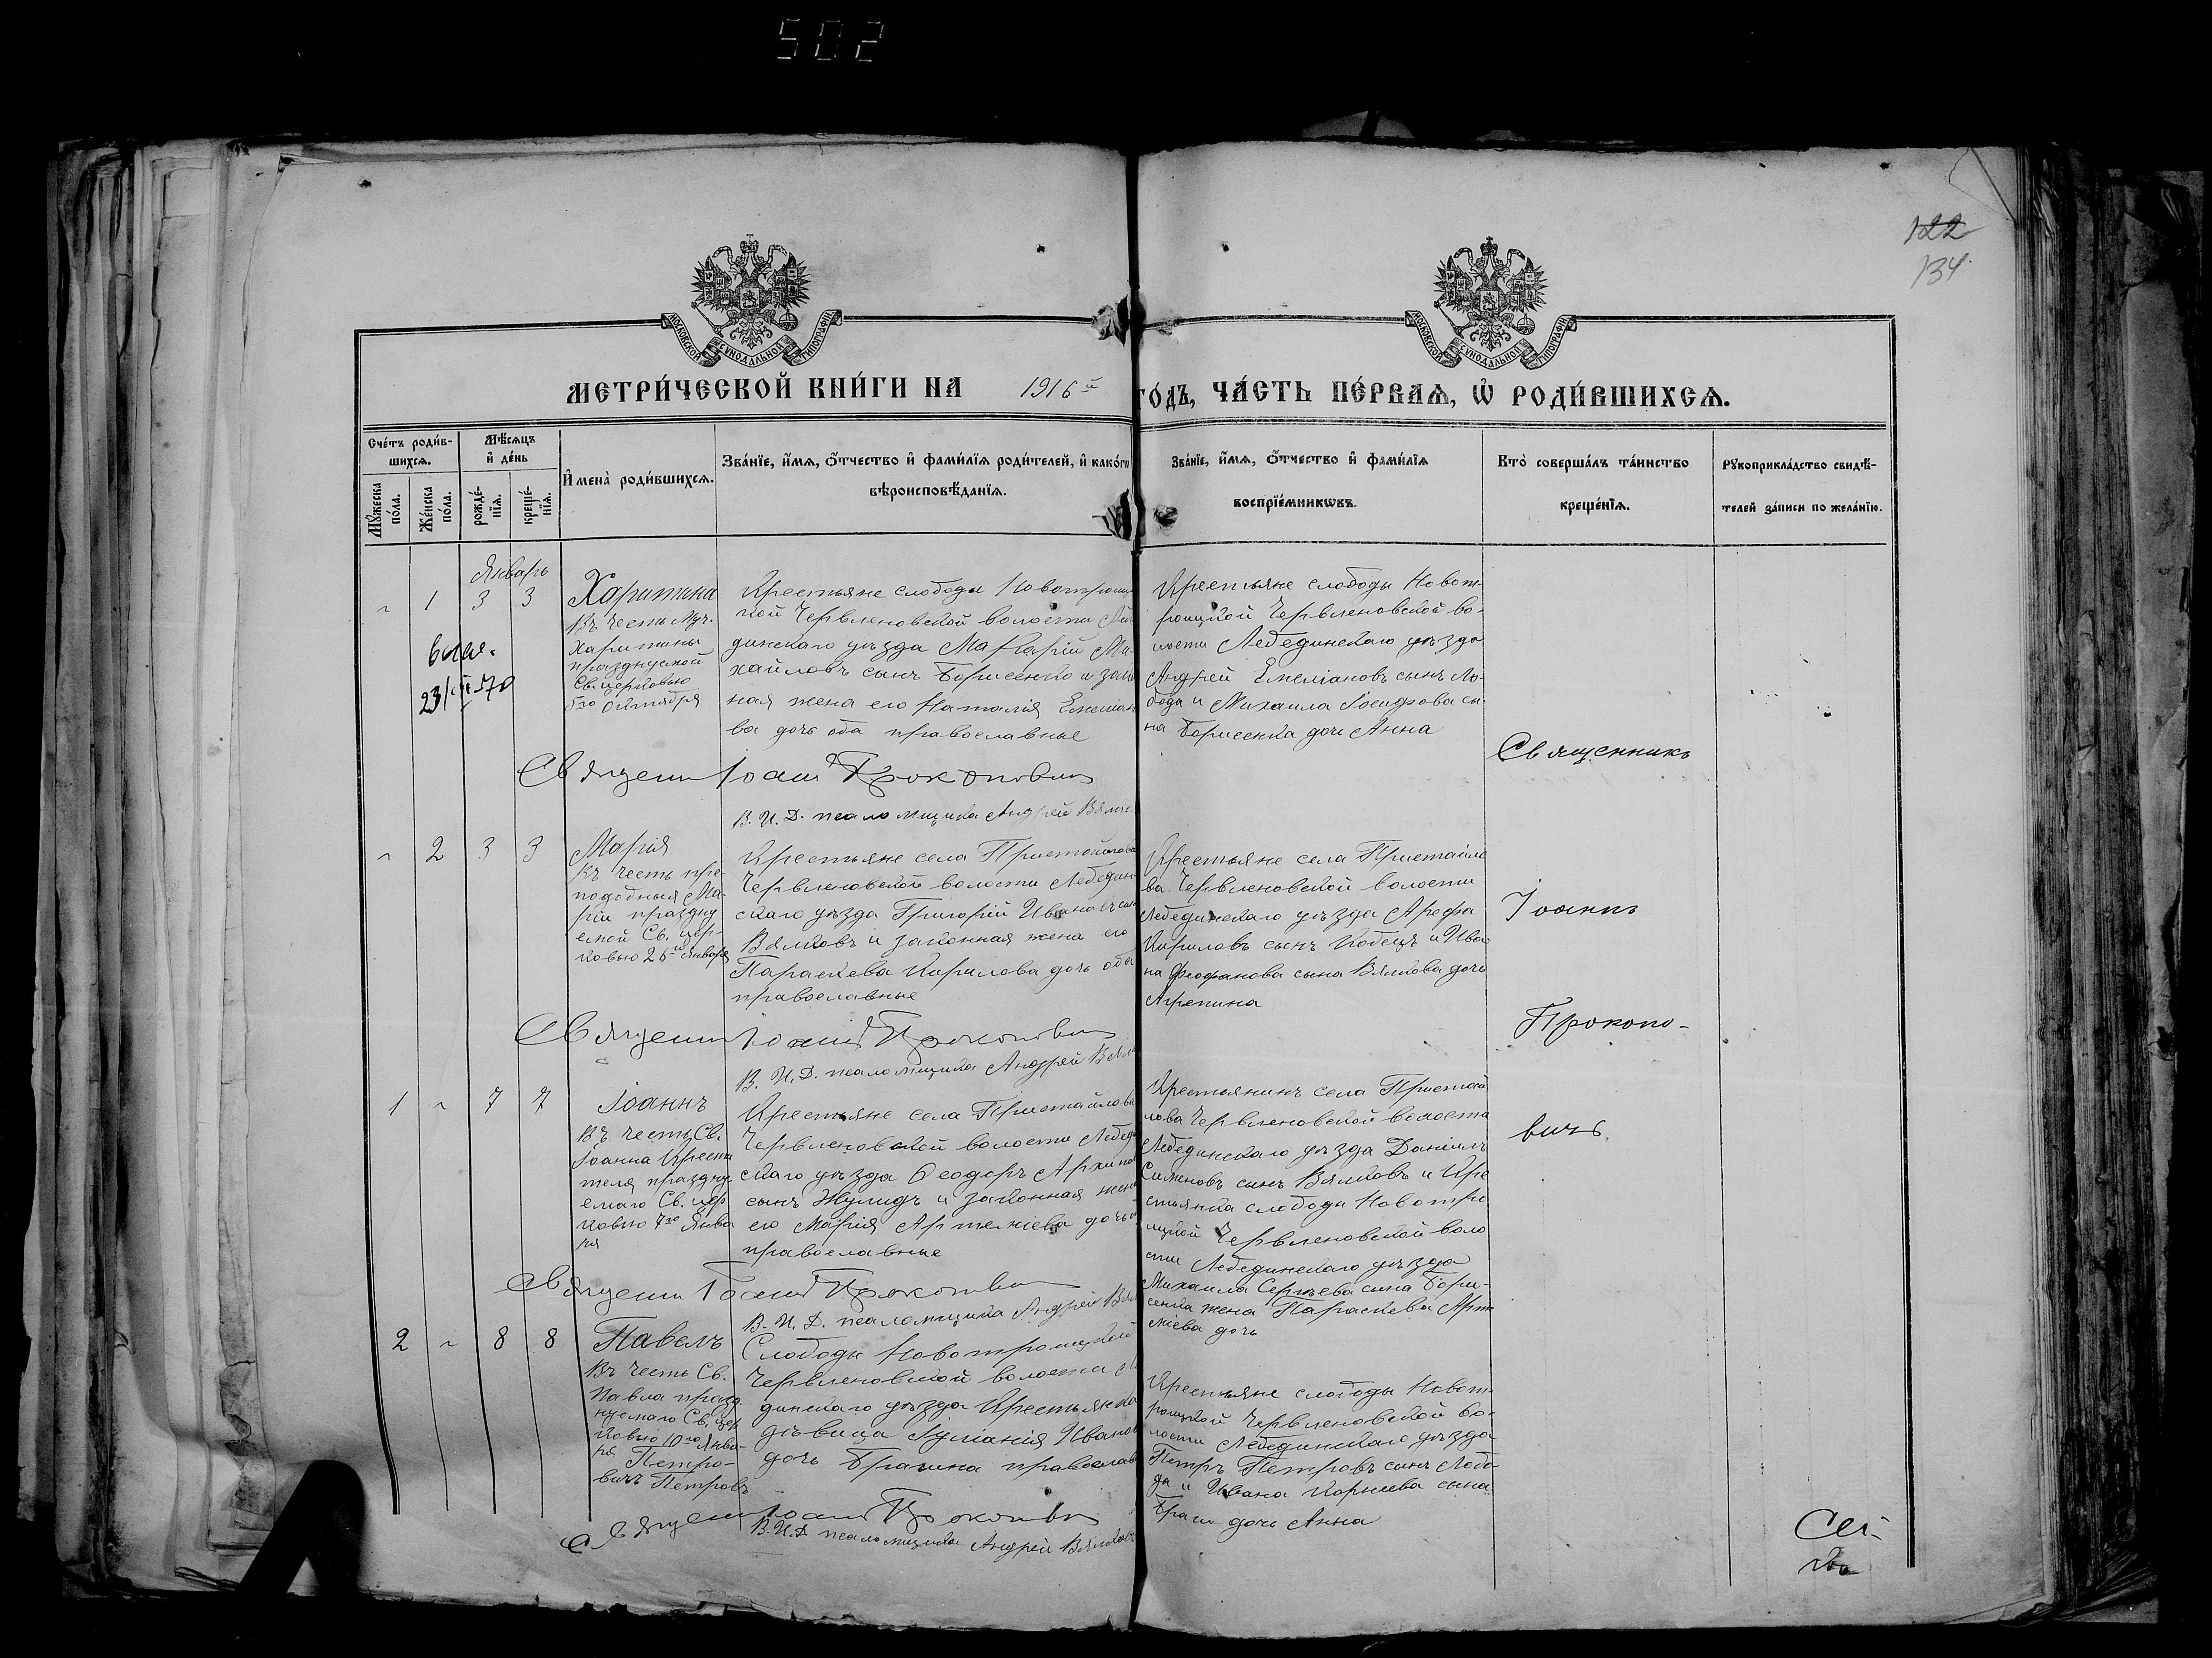 502
122
134
МОСКОВСКОЙ СУНОДАЛЬНОЙ ТИПОГРАФІИ
МОСКОВСКОЙ СУНОДАЛЬНОЙ ТИПОГРАФІИ
МЕТРИ́ЧЕСКОЙ КНИ́ГИ НА 1916й ГО́ДЪ, ЧА́СТЬ ПЕ́РВАѦ, Ѡ РОДИ́ВШИХСѦ.
Сче́тъ роди́в-
шихсѧ.
Мꙋ́жеска по́ла.
Же́нска по́ла.
Мѣ́сѧцъ и де́нь
рожде́-нїѧ.
креще́-нїѧ.
Имена̀ роди́вшихсѧ.
Зва́нїе, и́мѧ, о́тчество и фами́лїѧ роди́телей, и како́гѡ
вѣроисповѣ́данїѧ.
Зва́нїе, и́мѧ, о́тчество и фами́лїѧ
воспрїе́мникѡвъ.
Кто̀ соверша́лъ та́инство
креще́нїѧ.
Рꙋкоприкла́дство свидѣ́-
телей за́писи по жела́нїю.
Январь
1 3 3
23/ 70
Харитина
Въ честь муч.
Харитины
празднуемой
Св. церковью
5го Октября
Крестьяне слободы Новотроиц
кой Червленовской волости Ле
динскаго уѣзда Макарій Ми
хайловъ сынъ Борисенко и закон
ная жена его Наталія Емельян
ва дочь оба православные
Крестьяне слободы Новот-
роицкой Червленовской во-
лости Лебединскаго уѣзда
Андрей Емеліановъ сынъ Ло-
бода и Михаила Іосифова сы-
на Борисенка дочь Анна
Священ Іоаннъ Прокопович
В. И. Д. псаломщика Андрей Вялков
2 3 3
Марія
Въ честь пре-
подобныя Ма-
ріи праздну
емой Св. цер-
ковью 26й Января
Крестьяне села Пристайлова
Червленовской волости Лебедин
скаго уѣзда Григорій Ивановъ сын
Вялковъ и законная жена его
Параскева Кирилова дочь оба
православные
Крестьяне села Пристайло
ва Червленовской волости
Лебединскаго уѣзда Арефа
Кириловъ сынъ Кобецъ и Ива-
на Феофанова сына Вялкова дочь
Агрепина
Священ Іоаннъ Прокопович
В. И. Д. псаломщика Андрей Вялк
1 7 7
Іоаннъ
Въ честь Св.
Іоанна Крести
теля праздну-
емаго Св. цер
ковью 7го Янва
ря
Крестьяне села Пристайлова
Червленовской волости Лебед
скаго уѣзда Ѳеодоръ Архипов
сынъ Жулидъ и законная жена
его Марія Артеміева дочь
православные
Крестьянинъ села Пристай
лова Червленовской волости
Лебединскаго уѣзда Даніилъ
Сименовъ сынъ Вялковъ и Кре
стьянка слободы Новотро
ицкой Червленовской воло
сти Лебединскаго уѣзда
Михаила Сергѣева сына Бори-
сенка жена Параскева Арте
міева дочь
Священ Іоаннъ Прокопович
В. И. Д. псаломщика Андрей Вял
2 8 8
Павелъ
Въ честь Св.
Павла празд
нуемаго Св. цер
ковью 10го Янва-
ря Петро-
вичъ Петровъ
Слободы Новотроицкой
Червленовской волости
динскаго уѣзда Крестьянка
дѣвица Іуліанія Иванов
дочь Брагина православ
Крестьяне слободы Новот-
роицкой Червленовской во-
лости Лебединскаго уѣзда
Петръ Петровъ сынъ Лобо-
да и Ивана Корнѣева сына
дочь Анна
Священ Іоаннъ Прокопович
В. И. Д. псаломщика Андрей Вялковъ
Священникъ
Іоаннъ
Прокопо-
вичъ